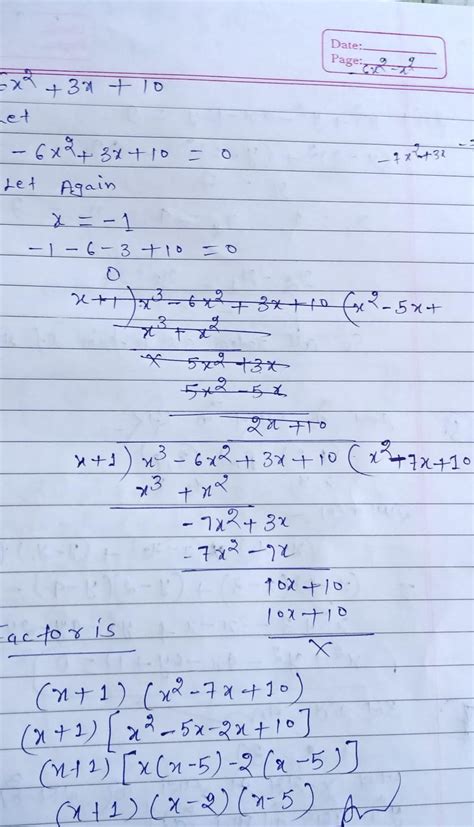 Date:
Page:
- 6x² - x²
6x² + 3x + 10
Let
- 6x² + 3x + 10 = 0
- 7x² + 3x
Let Again
x = -1
-1 - 6 - 3 + 10 = 0
0
x+1) x³ - 6x² + 3x + 10 (x² - 5x +
x³ + x²
x 5x² + 3x
5x² - 5x
2x + 10
x+1) x³ - 6x² + 3x + 10 (x² - 7x + 10
x³ + x²
- 7x² + 3x
- 7x² - 7x
10x + 10
10x + 10
x
actor is
(x+1) (x² - 7x + 10)
(x+1) [x² - 5x - 2x + 10]
(x+1) [x(x-5) - 2(x-5)]
(x+1) (x-2) (x-5)